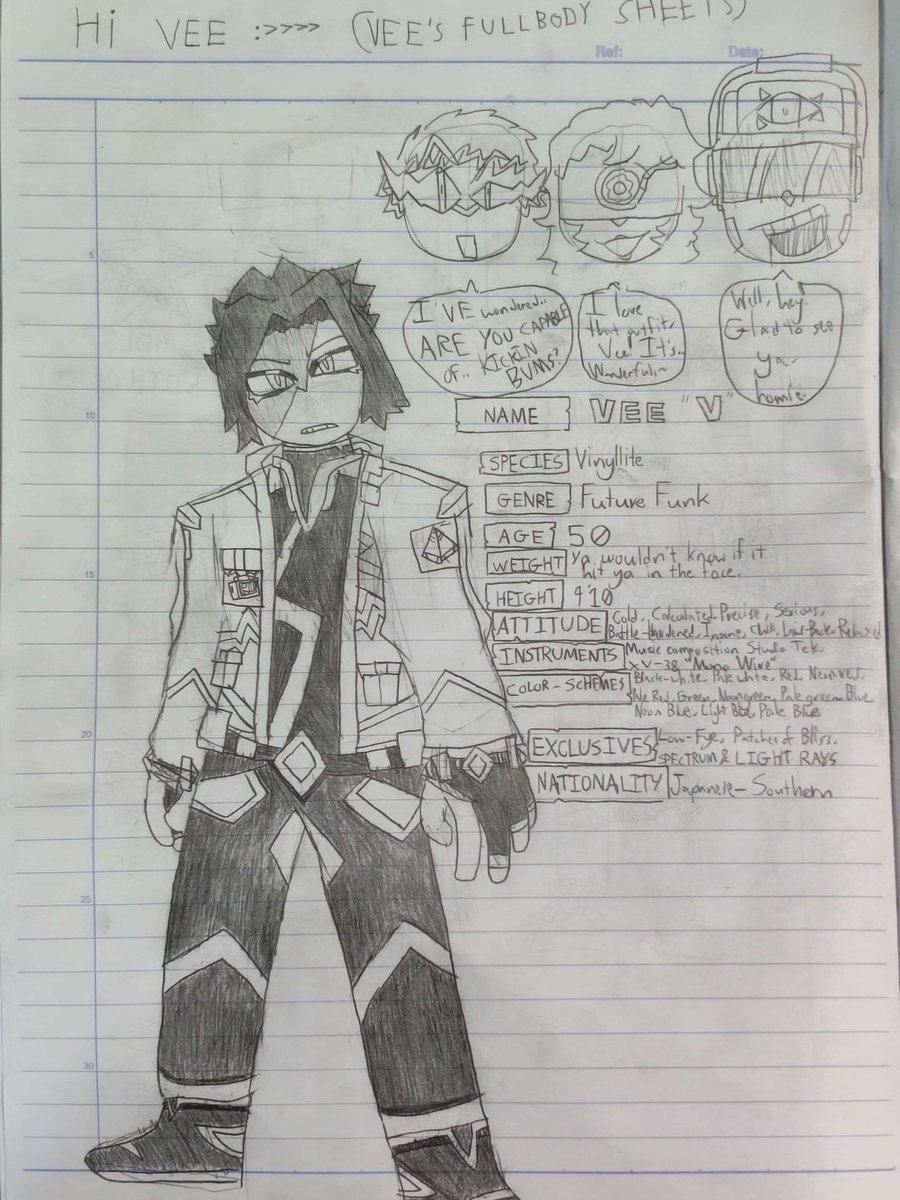 HI VEE :>>>> (VEE'S FULLBODY SHEETS)
Ref:
Date:
I'VE wondered..
ARE YOU CAPABLE
OF.. KICKIN
BUMS?
I love
that outfit,
Vee! It's..
Wonderful~
Well, hey.
Glad to see
ya-
homie.
NAME VEE "V"
SPECIES Vinyllite
GENRE Future Funk
AGE 50
WEIGHT Ya wouldn't know if it
hit ya in the face.
HEIGHT 4'10
ATTITUDE Cold, Calculated, Precise, Serious,
Battle-Hardened, Insane, Chill, Laid-Back, Relaxed
INSTRUMENTS Music composition Studio Tek.
XV-38 "Mono Wire"
COLOR-SCHEMES Black-white, Pale white, Red, Neon red,
Red, Green, Neon green, Pale green, Blue,
Neon Blue, Light Blue, Pale Blue
EXCLUSIVES Low-Fye, Patches of Bliss,
SPECTRUM & LIGHT RAYS
NATIONALITY Japanese-Southern
5
10
15
20
25
30